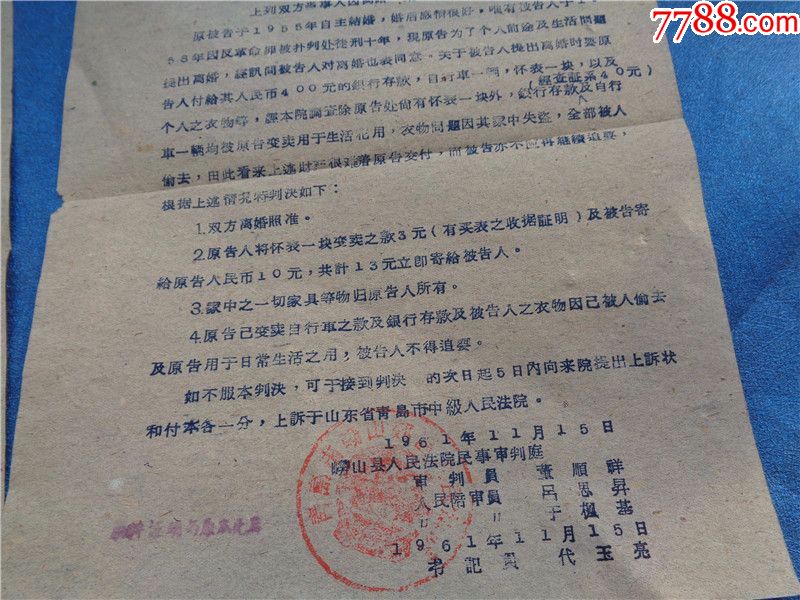 7788.com
上列双方当事人因离婚
原被告于1955年自主結婚，婚后感情很好，唯有被告人于1
58年因反革命卵被扑判处徒刑十年，現原告为了个人前途及生活問題
提出离婚，經訊問被告人对离婚也表同意。关于被告人提出离婚时要原
告人付給其人民币400元的銀行存款，自行車一輛，怀表一块，以及
个人之衣物等，經本院調查除原告处尚有怀表一块外，銀行存款及自行
（經查証系40元）
車一輛均被原告变卖用于生活花用，衣物問題因其家中失盜，全部被人
偷去，由此看来上述财很难着原告交付，而被告亦不应再继續追要，
根据上述情况特判决如下：
1.双方离婚照准。
2.原告人将怀表一块变卖之款3元（有买表之收据証明）及被告寄
給原告人民币10元，共計13元立即寄給被告人。
3.家中之一切家具等物归原告人所有。
4.原告已变卖自行車之款及銀行存款及被告人之衣物因已被人偷去
及原告用于日常生活之用，被告人不得追要。
如不服本判决，可于接到判决 的次日起5日內向来院提出上訴状
和付本各一分，上訴于山东省青島市中級人民法院。
1961年11月15日
嶗山县人民法院民事审判庭
审判員 董順祥
人民陪审員 呂思昇
〃 〃 于楓基
1961年11月15日
书記員 代玉亮